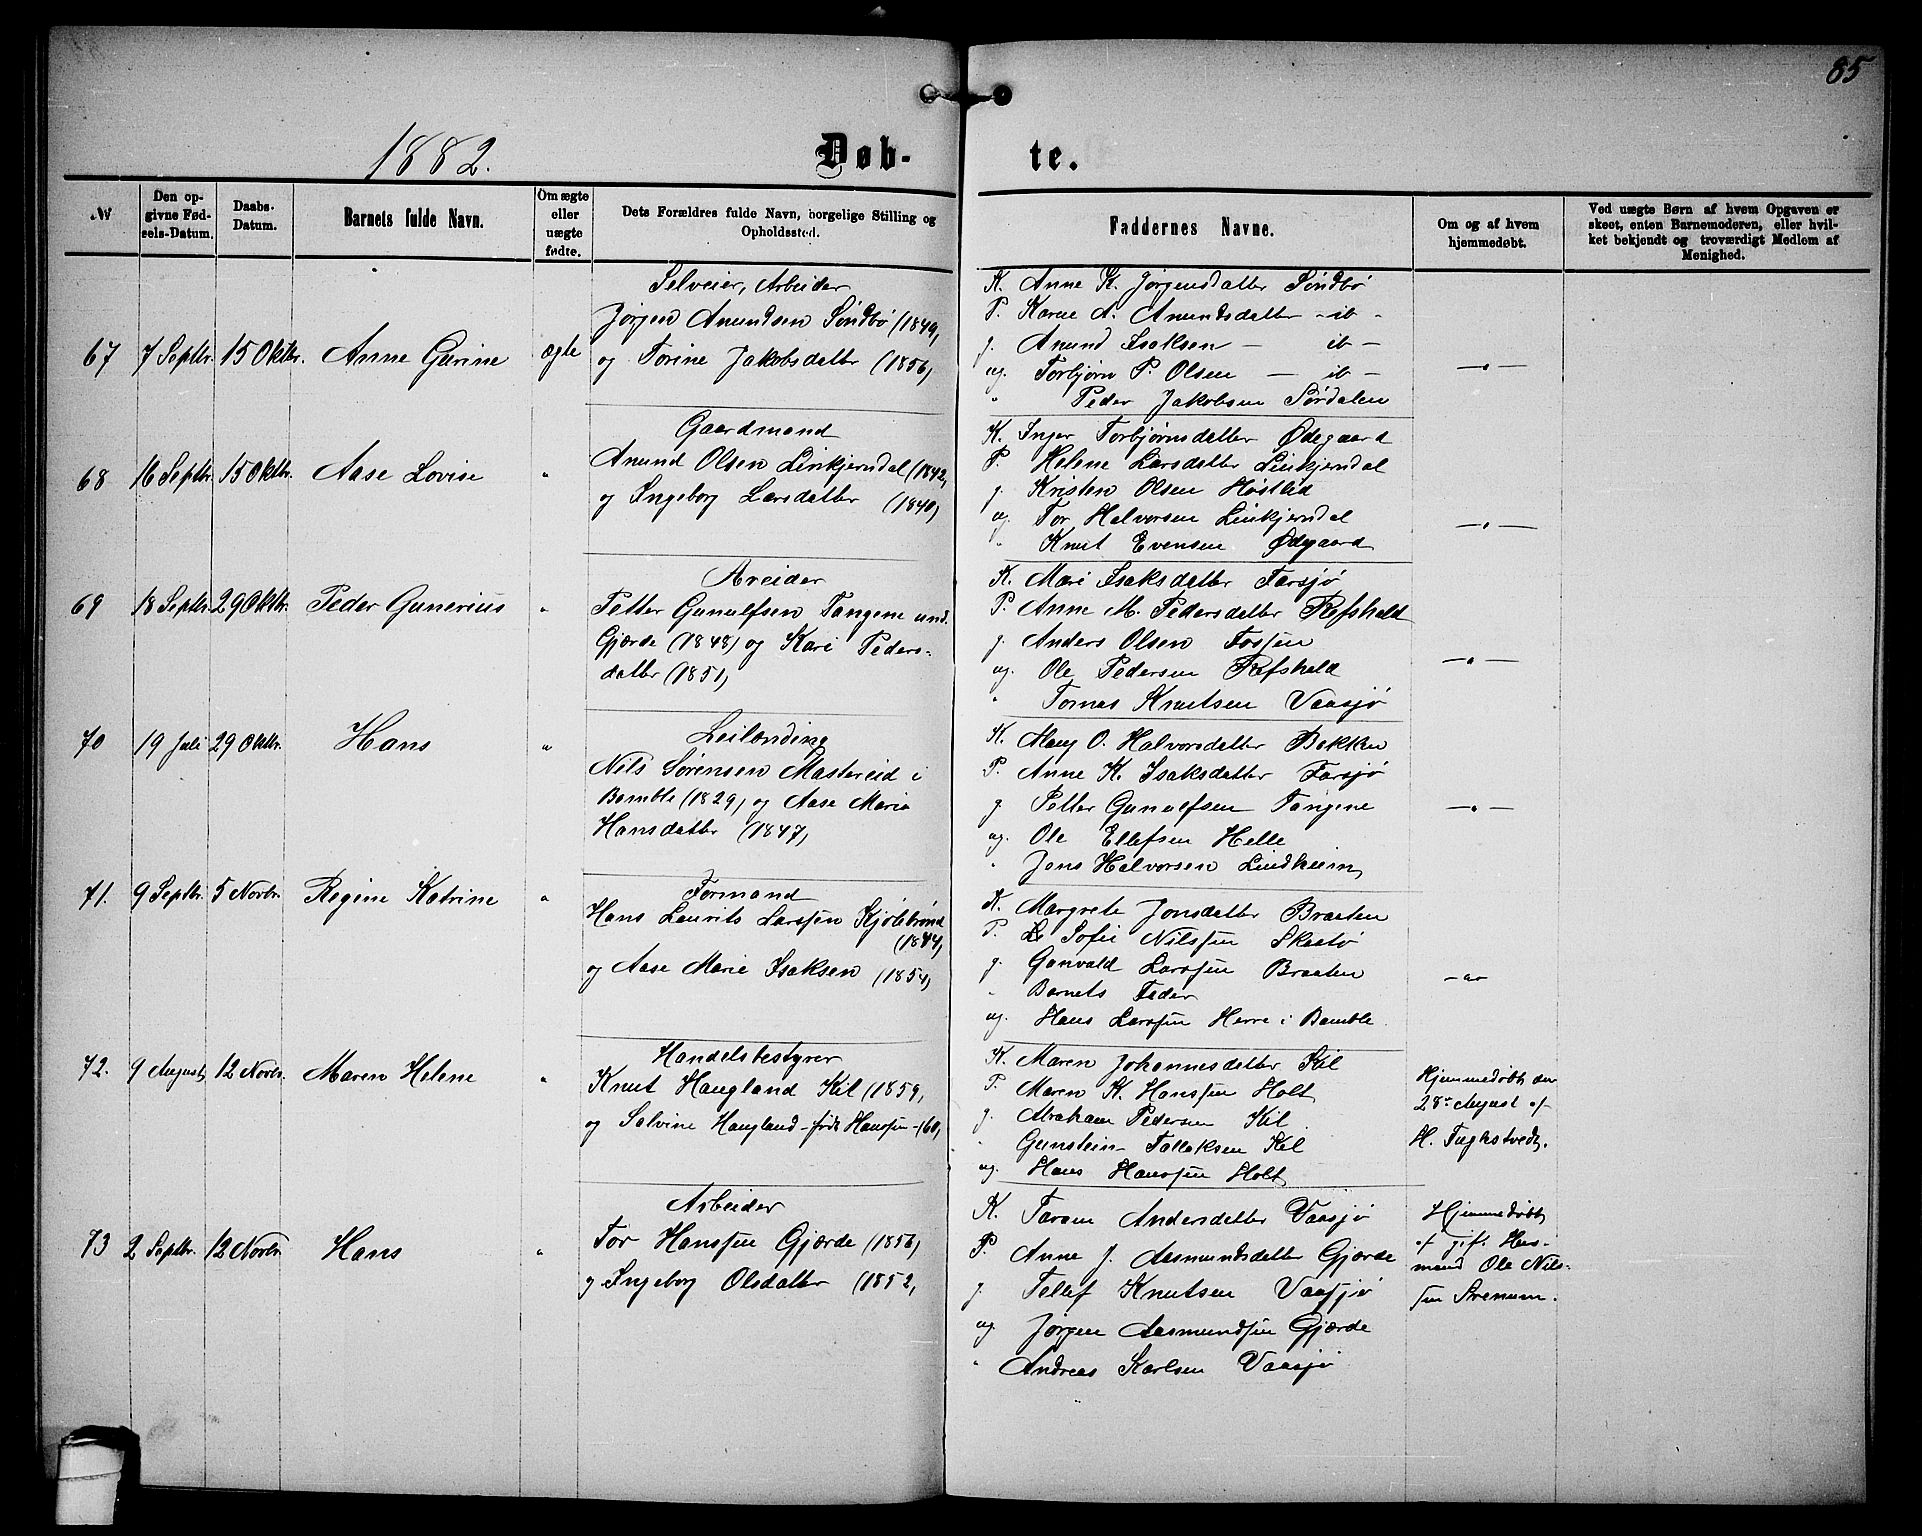 85
1882.
Døb-
te.
№
Den op-
givne Fød-
sels-Datum.
Daabs-
Datum.
Barnets fulde Navn.
Om ægte
eller
uægte
fødte.
Dets Forældres fulde Navn, borgelige Stilling og
Opholdssted.
Faddernes Navne.
Om og af hvem
hjemmedøbt.
Ved uægte Børn af hvem Opgaven er
skeet, enten Barnemoderen, eller hvil-
ket bekjendt og troværdigt Medlem af
Menighed.
67 7 Septbr. 15 Oktbr. Anne Gurine ægte
Selveier, Arbeider
Jørgen Anundsen Søndbø (1849,
og Torine Jakobsdatter (1856,
K. Anne K. Jørgensdatter Søndbø
P. Karne A. Anundsdatter - ib -
g. Anund Isaksen — ib —
og. Torbjørn P. Olsen — ib —
" Peder Jakobsen Sørdalen
—"—
68 16 Septbr. 15 Oktbr. Aase Lovise "
Gaardmand
Anund Olsen Linkjerndal (1842,
og Ingeborg Larsdatter (1840,
K. Inger Torbjørnsdatter Ødegaard
P. Helene Larsdatter Linkjerndal
g. Kristen Olsen Høstlid
og. Tor Halvorsen Linkjerndal
" Knut Evensen Ødegaard
—"—
69 18 Septbr. 29 Oktbr. Peder Gunerius "
Areider
Petter Gunulfsen Tangene und.
Gjærde (1848) og Kari Peders-
datter (1851,
K. Mari Isaksdatter Farsjø
P. Anne M. Pedersdatter Refshald
g. Anders Olsen Fosjen
og. Ole Pedersen Refshald
" Tomas Knutsen Vaasjø
—"—
70 19 Juli 29 Oktbr. Hans "
Leilænding
Nils Sørensen Mastereid i
Bamble (1829, og Aase Marie
Hansdatter (1847,
K. Maug O. Halvorsdatter Bakken
P. Anne K. Isaksdatter Farsjø
g. Petter Gunulfsen Tangene
og. Ole Ellefsen Helle
" Jens Halvorsen Lindheim
—"—
71. 9 Septbr. 5 Novbr. Regine Katrine "
Formand
Hans Laurits Larssen Kjølebrønd
(1844,
og Aase Marie Isaksen (1854,
K. Margrete Jonsdatter Braaten
P. L. Sofie Nilssen Skaatø
g. Gunvald Larssen Braaten
" Barnets Fader
og. Hans Larssen Herre i Bamble.
—"—
72. 9 August 12 Novbr. Maren Helene "
Handelsbestyrer
Knut Haugland Kil (1859,
og Salvine Haugland - født Hanssen - (60,
K. Maren Johannesdatter Kil
P. Maren K. Hanssen Holt
g. Abraham Pedersen Kil
" Gunstein Tallaksen Kil
og. Hans Hanssen Holt
Hjemmedøbt den
28de August af
H. Tveghstvedt.
73 2 Septbr. 12 Novbr. Hans "
Arbeider
Tor Hanssen Gjærde (1856,
og Ingeborg Olsdatter (1852,
K. Taran Andersdatter Vaasjø
P. Anne J. Aasmundsdatter Gjærde
g. Tellef Knutsen Vaasjø
og Jørgen Aasmundsen Gjærde
" Andreas Karlsen Vaasjø
Hjemmedøbt
af gift Hus-
mand Ole Nils-
sen Svenum.